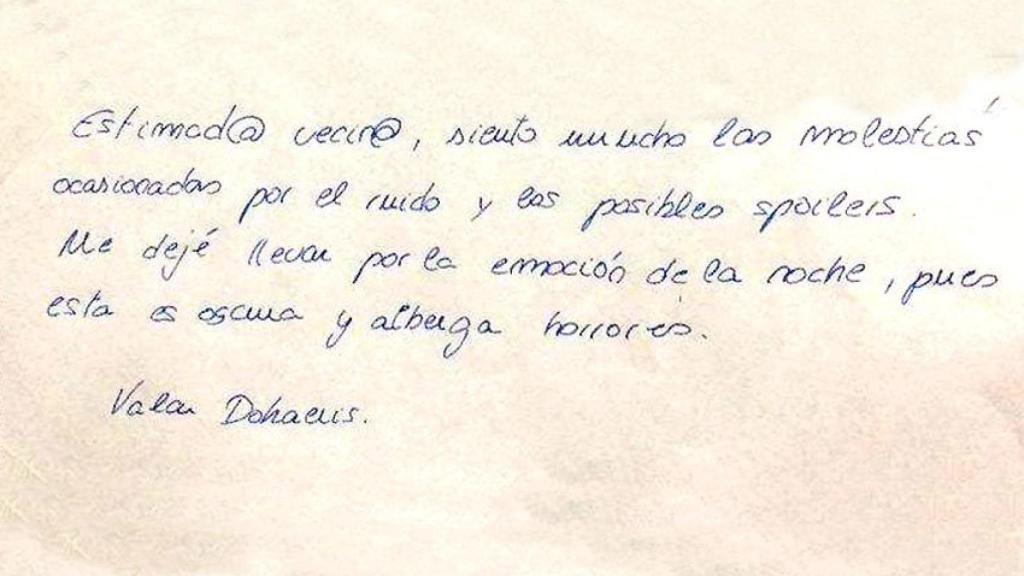 Estimad@ vecin@, siento mucho las molestias
ocasionadas por el ruido y los posibles spoilers.
Me dejé llevar por la emoción de la noche, pues
esta es oscura y alberga horrores.
Valar Dohaeris.